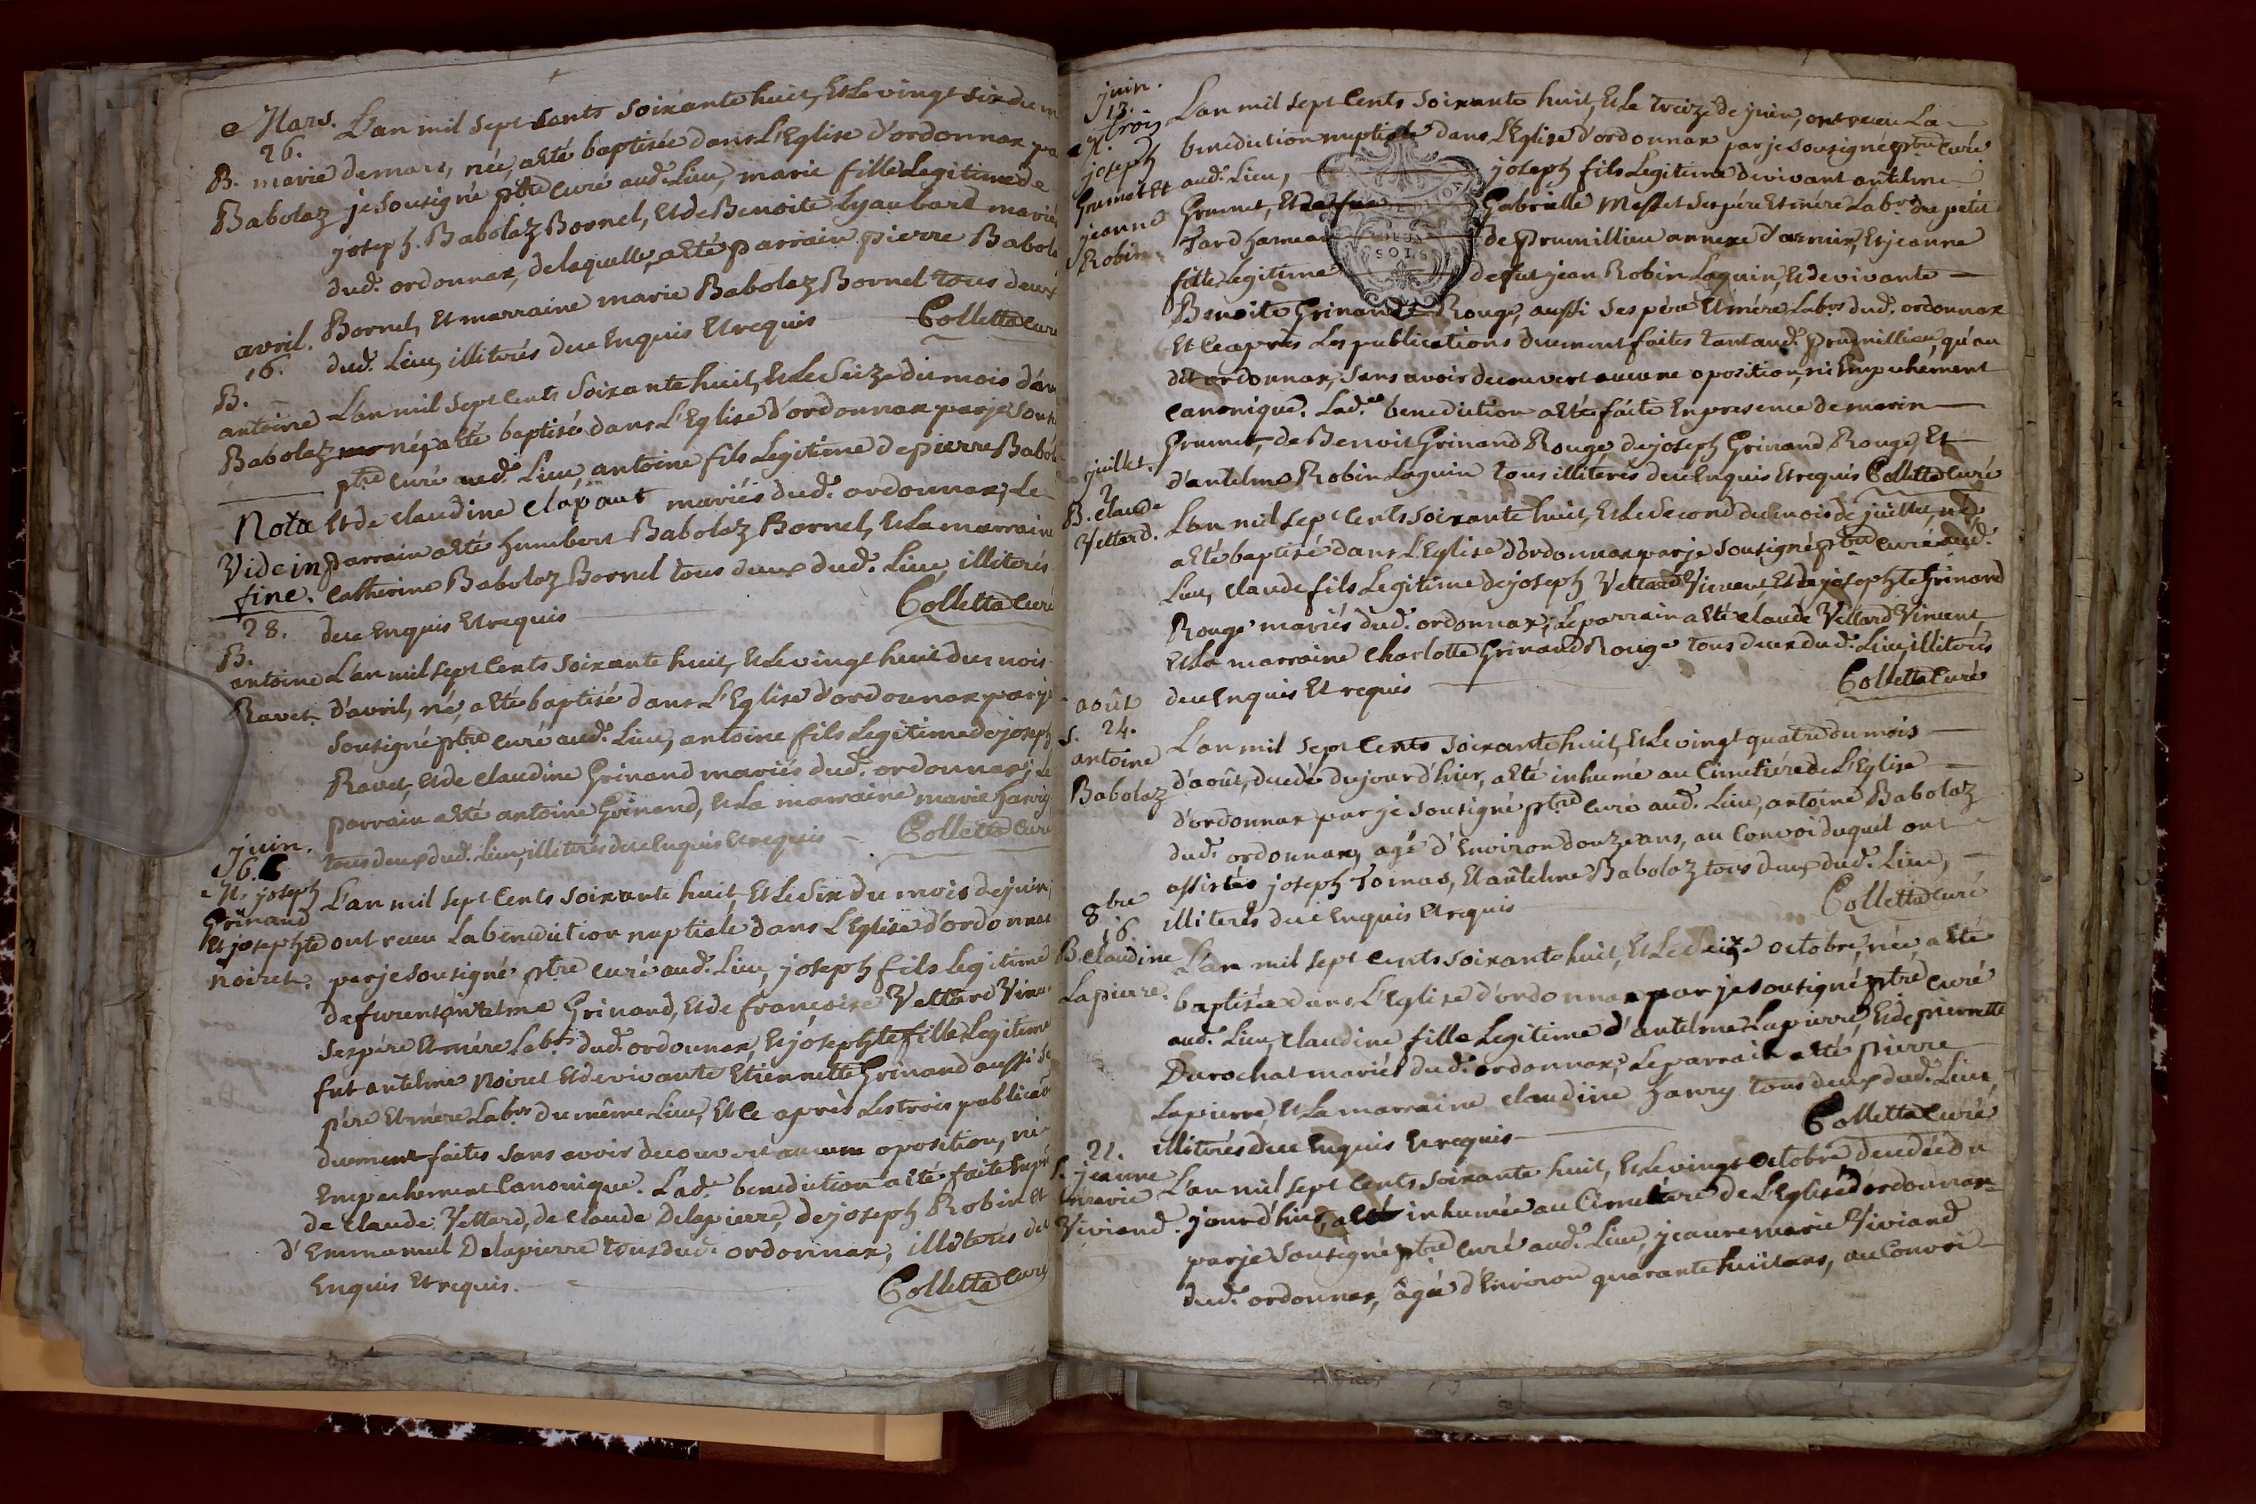 Mars.
26.
B. marie
Babolaz
L'an mil sept cents soixante huit, et le vingt six du
de mars, née, a été baptisée dans l'Eglise d'ordonnax
je sousigné ptre curé aud. Lieu, marie fille Legitime de
joseph Babolaz Bornel, et de Benoite Lyaubard mariés
dud. ordonnax, de laquelle a été parrain pierre Babolaz
Bornel, et marraine marie Babolaz Bornel tous deux
dud. Lieu, illiterés de ce enquis et requis
Colletta curé
avril.
16.
B.
antoine
Babolaz
L'an mil sept cents soixante huit, et le seize du mois d'avril
né, a été baptisé dans l'Eglise d'ordonnax par je sousigné
ptre curé aud. Lieu, antoine fils Legitime de pierre Babolaz
et de claudine clapaut mariés dud. ordonnax, Le
parrain a été humbert Babolaz Bornel, et La marraine
catherine Babolaz Bornel tous deux dud. Lieu, illiterés
de ce enquis et requis
Colletta curé
Nota
Vide in
fine.
28.
B.
antoine
Ravet.
L'an mil sept cents soixante huit, et le vingt huit du mois
d'avril, né, a été baptisé dans l'Eglise d'ordonnax par je
sousigné ptre curé aud. Lieu, antoine fils Legitime de joseph
Ravet, et de claudine Grinand mariés dud. ordonnax; Le
parrain a été antoine Grinand, et La marraine marie
tous deux dud. Lieu, illiterés de ce enquis et requis
Colletta curé
juin.
6.
M. joseph
Grinand
et josephte
noiret.
L'an mil sept cents soixante huit, et le six du mois de juin,
ont reçu La benediction nuptiale dans L'Eglise d'ordonnax
par je sousigné ptre curé aud. Lieu, joseph fils legitime
de furent antelme Grinand, et de françoise Vettard Vincent
ses père et mère Labrs dud. ordonnax, et josephte fille Legitime
fut antelme Noiret et de vivante Etiennette Grinand aussi ses
père et mère Labrs du même Lieu, et ce après Les trois publications
duement faites sans avoir decouvert aucune oposition, ni
Empechement Canonique. Lad. benediction a été faite
de claude Vettard, de claude Delapierre, de joseph Robin et
d'Emmanuel Delapierre tous dud. ordonnax, illiterés de
Enquis et requis.
Colletta curé
juin.
13.
joseph
Grumet et
jeanne
Robin
L'an mil sept cents soixante huit, et Le treize de juin, ont reçu La
benediction nuptiale dans l'Eglise d'ordonnax par je sousigné ptre curé
aud. Lieu, joseph fils Legitime de vivant antelme
Grumet, et de Gabrielle Messet ses père et mère Labrs du petit
hameau de Prumillieu annexe d'arnix, et jeanne
fille legitime SOLS de fut jean Robin Laguin, et de vivante
Benoite Grinand Rouge, aussi ses père et mère Labrs dud. ordonnax
et ce après Les publications duement faites tant aud. Prumillieu, qu'au
dit ordonnax, sans avoir decouvert aucune oposition, ni Empechement
canonique. Lad. benediction a été faite en presence de marin
Grumet, de Benoit Grinand Rouge, de joseph Grinand Rouge, et
d'antelme Robin Laguin tous illiterés de ce enquis et requis Colletta curé
juillet.
2
B. claude
Vettard.
L'an mil sept cents soixante huit, et le second du mois de juillet, né
a été baptisé dans l'Eglise d'ordonnax par je sousigné ptre curé aud.
Lieu, claude fils Legitime de joseph Vettard Vincent, et de josephte Grinand
Rouge mariés dud. ordonnax; Le parrain a été claude Vettard Vincent,
et la marraine charlotte Grinand Rouge tous deux dud. Lieu, illiterés
de ce enquis et requis
Colletta curé
août
S. 24.
antoine
Babolaz
L'an mil sept cents soixante huit, et le vingt quatre du mois
d'août, decedé du jour d'hier, a été inhumé au Cimetière de l'Eglise
d'ordonnax par je sousigné ptre curé aud. Lieu, antoine Babolaz
dud. ordonnax, agé d'Environ douze ans, au Convoi duquel ont
assistés joseph Tomas, et antelme Babolaz tous deux dud. Lieu,
illiterés de ce enquis et requis
Colletta curé
8bre
16
B. claudine
Lapierre.
L'an mil sept cents soixante huit, et le seize octobre, née, a été
baptisée dans L'Eglise d'ordonnax par je sousigné ptre curé
aud. Lieu, claudine fille Legitime d'antelme Lapierre, et de pierrette
Durochat mariés dud. ordonnax; Le parrain a été pierre
Lapierre, et La marraine claudine hanry tous deux dud. Lieu,
illiterés de ce enquis et requis
Colletta curé
21.
S. jeanne
marie
Viviand.
L'an mil sept cents soixante huit, et Le vingt octobre decedée du
jour d'hier, a été inhumée au Cimetière de L'Eglise d'ordonnax
par je sousigné ptre curé aud. Lieu, jeanne marie Viviand
dud. ordonnax, âgée d'Environ quarante huit ans, au Convoi